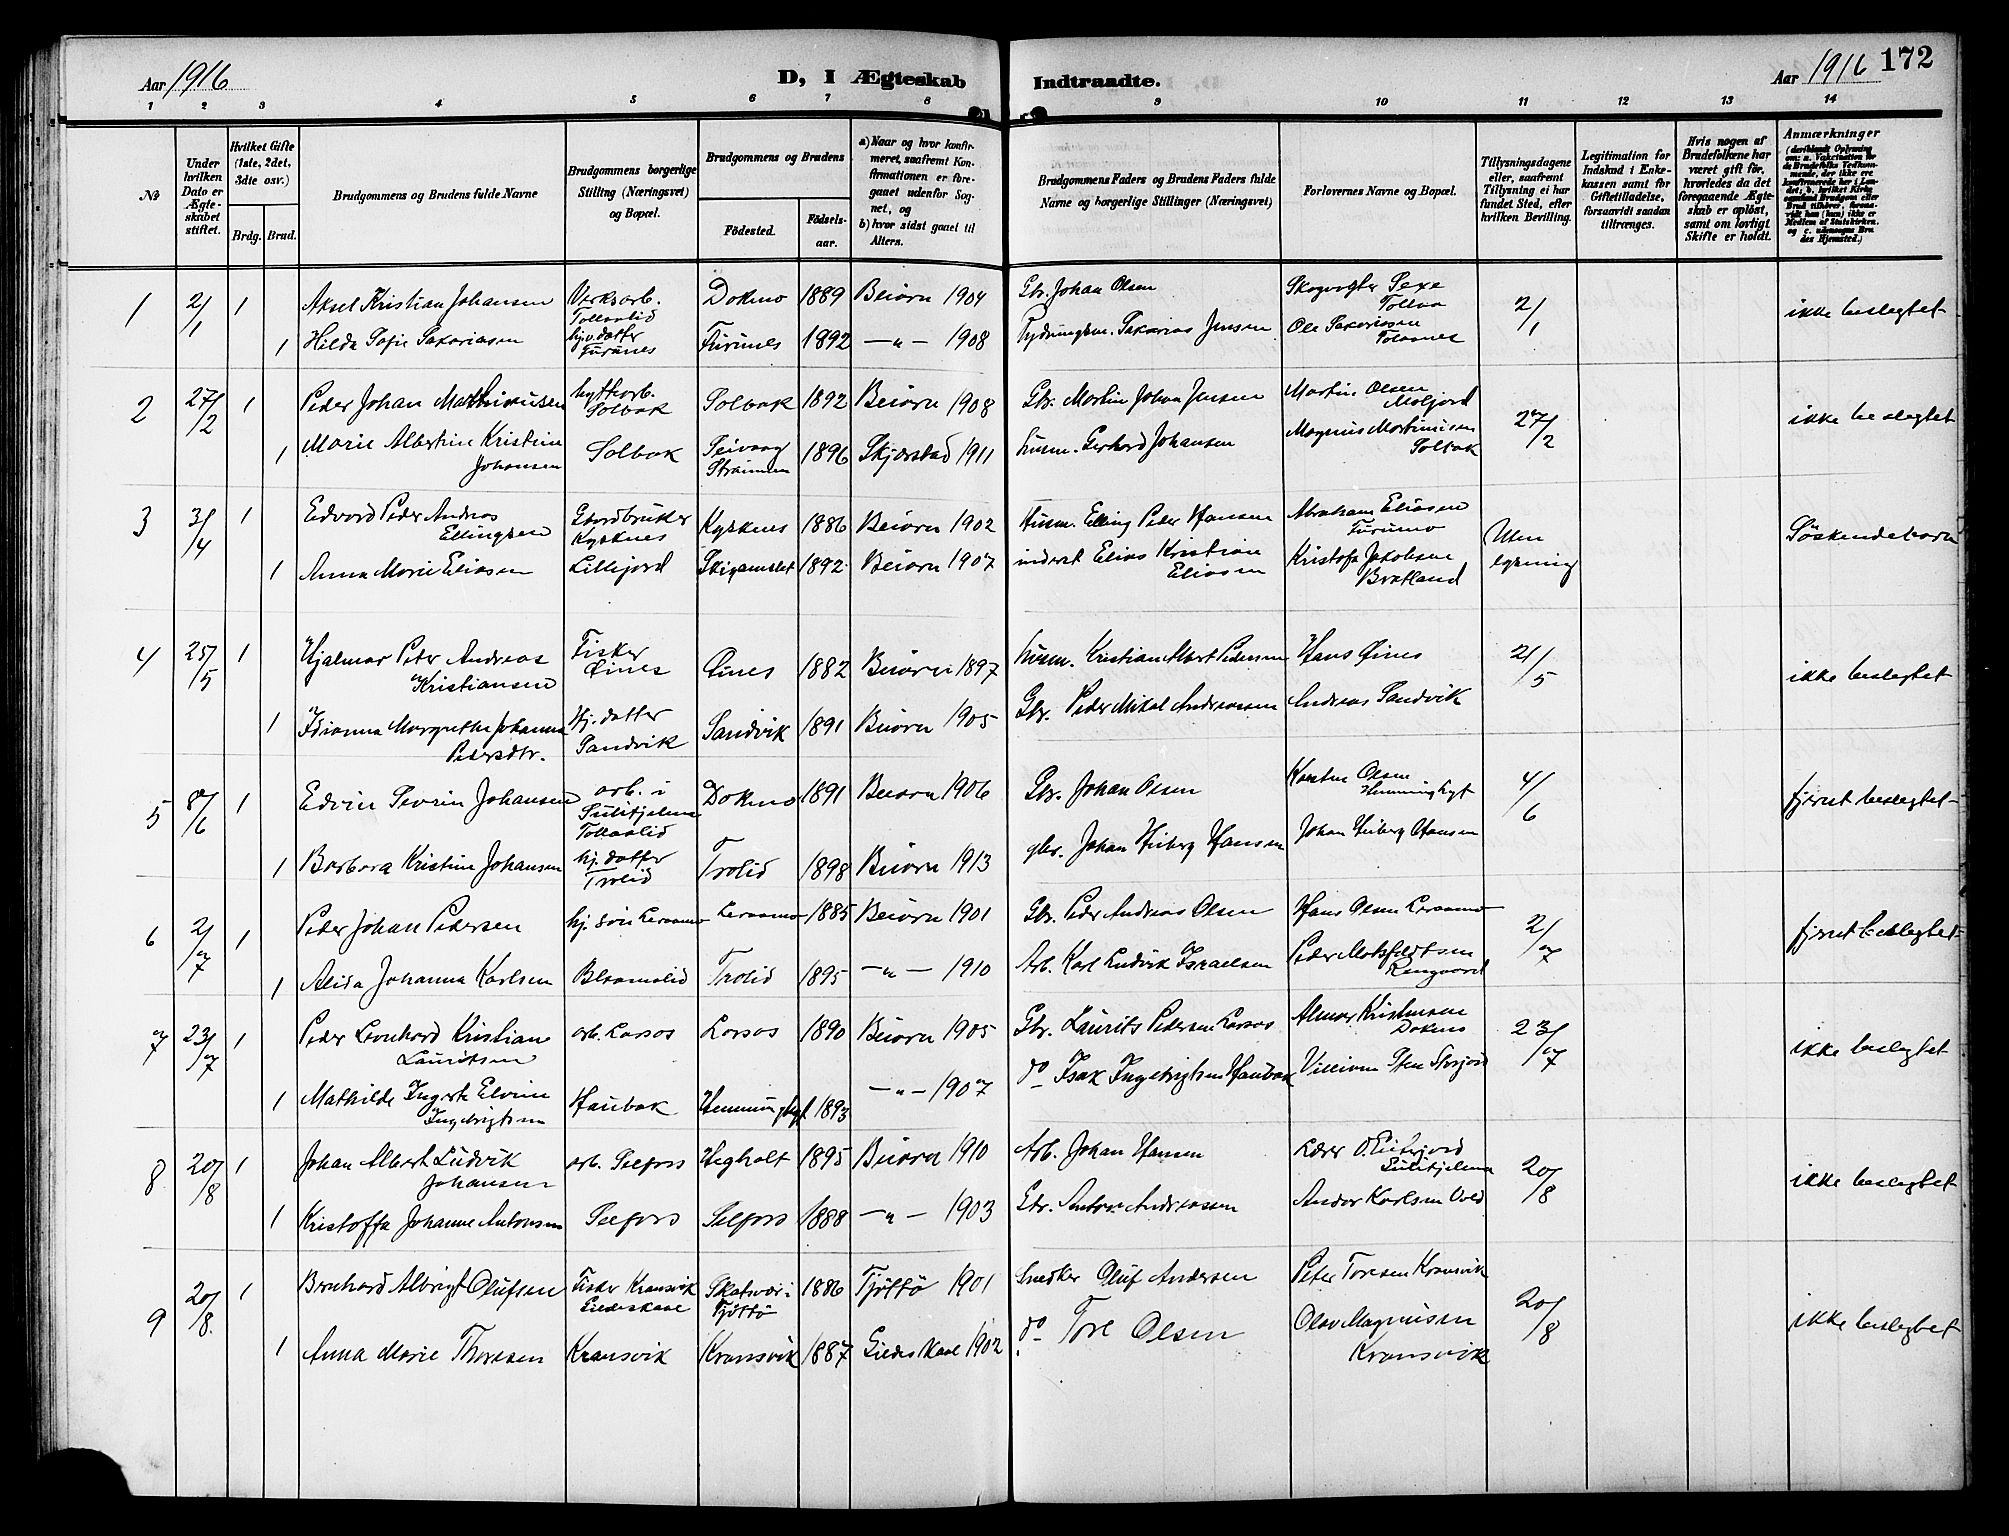 Aar 1916
D, I Ægteskab Indtraadte.
Aar 1916 172
1 2 3 4 5 6 7 8 9 10 11 12 13 14
No
Under hvilken Dato er Ægteskabet stiftet.
Hvilket Gifte (1ste, 2det, 3dte osv.)
Brdg. Brud.
Brudgommens og Brudens fulde Navne
Brudgommens borgerlige Stilling (Næringsvei) og Bopæl.
Brudgommens og Brudens
Fødested.
Fødselsaar.
a) Naar og hvor konfirmeret, saafremt Konfirmationen er foregaaet udenfor Sognet, og
b) hvor sidst gaaet til Alters.
Brudgommens Faders og Brudens Faders fulde Navne og borgerlige Stillinger (Næringsvei)
Forlovernes Navne og Bopæl.
Tillysningsdagene eller, saafremt Tillysning ei har fundet Sted, efter hvilken Bevilling.
Legitimation for Indskud i Enkekassen samt for Giftetilladelse, forsaavidt saadan tiltrænges.
Hvis nogen af Brudefolkene har været gift før, hvorledes da det foregaaende Ægteskab er opløst, samt om lovligt Skifte er holdt.
Anmærkninger
1 2/1 1 Aksel Kristian Johansen Verksarb. Tollaalid Dokmo 1889 Beiarn 1904 Gbr. Johan Olsen Skogvogter Sexe Tollaa 2/1 ikke beslegtet
1 Hilda Sofie Sakariasen hj.v. datter Furunes Furunes 1892 —"— 1908 Sakarias Jensen Ole Sakariasen Tolaanes
2 27/2 1 Peder Johan Mathinusen hyttearb. Solbak Solbak 1892 Beiarn 1908 Gbr. Martin Johan Jensen Martin Olsen Moljord 27/2 ikke beslegtet
1 Marie Albertine Kristine Johansen Solbak Seivaag Straumen 1896 Skjærstad 1911 husm. Gerhard Johansen Magnus Martinusen Solbak
3 3/4 1 Edvard Peder Andreas Ellingsen Gbardbruker Kysknes Kysknes 1886 Beiarn 1902 Husm. Elling Peder Hansen Abraham Eliasen Furumo Uten lysning Søskendebarn
1 Anna Marie Eliasen Lillejord 1892 Beiarn 1907 inderst Elias Kristian Eliasen Kristofa Jakobsen Bratland
4 25/5 1 Hjalmar Peter Andreas Kristiansen Fisker Øines Øines 1882 Beiarn 1897 husm. Kristian Albert Pedersen Hans Øines 21/5 ikke beslegtet
1 Idianna Margrethe Johanna Pedersdtr. Hj. datter Sandvik Sandvik 1891 Beiarn 1905 Gbr. Peder Mikal Andreassen Andreas Sandvik
5 8/6 1 Edvin Severin Johansen arb. i Sulitjelma Tollaalid Dokmo 1891 Beiarn 1906 Gbr. Johan Olsen Karstin Olsen Hemminghyt 4/6 fjernt beslegtet
1 Barbara Kristine Johansen hj. datter Trolid Trolid 1898 Beiarn 1913 gbr. Johan Hiberg Hansen Johan Hiberg Hansen
6 2/7 1 Peder Johan Pedersen hj. søn Leraamo Leraamo 1885 Beiarn 1901 Gbr. Peder Andreas Olsen Hans Olsen Leraamo 2/7 fjernt beslegtet
1 Alida Johanna Karlsen Blaamolid Trolid 1895 —"— 1910 Arb. Karl Ludvik Israelsen Peder Motzfeldtsen Ringaard
7 23/7 1 Peder Leonhard Kristian Lauritsen arb. Larsos Larsos 1890 Beiarn 1905 Gbr. Laurits Pedersen Larsos Almar Kristensen Dokmo 23/7 ikke beslegtet
1 Mathilde Ingerte Elvine Ingebrigtsen Haubak Hemminghyt 1893 —"— 1907 do Isak Ingebrigtsen Haubak Villiam Sten Storjord
8 20/8 1 Johan Albert Ludvik Johansen arb. Selfors Heghalt 1895 Beiarn 1910 Arb. Johan Hansen Lærer O. Eiterjord Sulitjelma 20/8 ikke beslegtet
1 Kristoffa Johanne Antonsen Selfors Selfors 1888 —"— 1903 Gbr. Anton Andreassen Andor Karlsen Vold
9 20/8. 1 Bernhard Albrigt Olufsen Fisker Kransvik Gildeskaal Skatsvær i Tjøttø 1886 Tjøttø 1901 Snedker Oluf Andersen Peter Toresen Kransvik 20/8 ikke beslegtet
1 Anna Marie Thoresen Kransvik Kransvik 1887 Gildeskaal 1902 do. Tore Olsen Olav Magnusen Kransvik